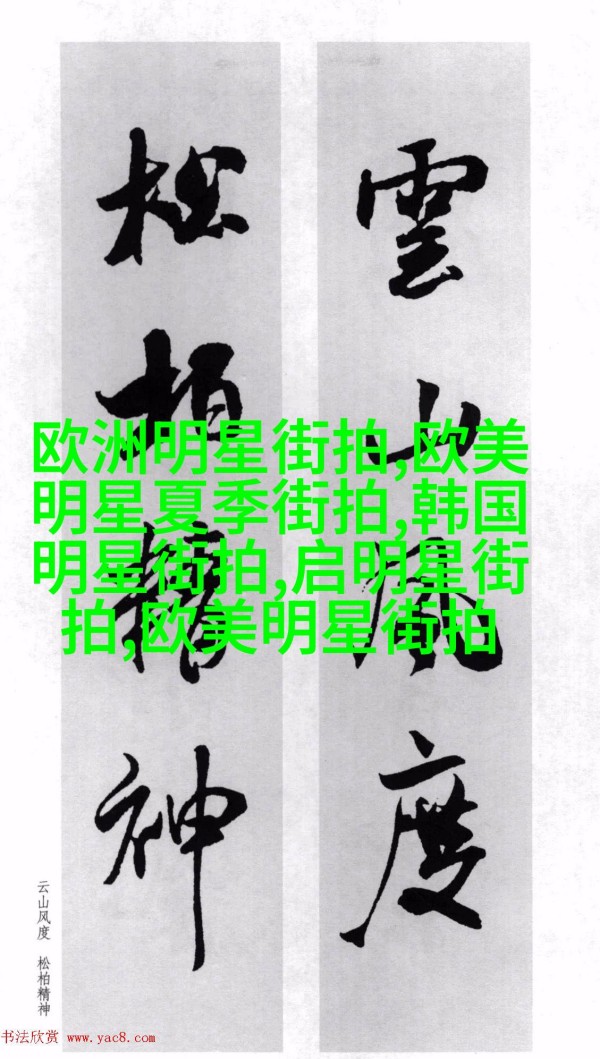 雲山風度
松柏精神
欧洲明星街拍,欧美
明星夏季街拍,韩国
明星街拍,启明星街
拍,欧美明星街拍
云山风度 松柏精神
书法欣赏 www.yac8.com